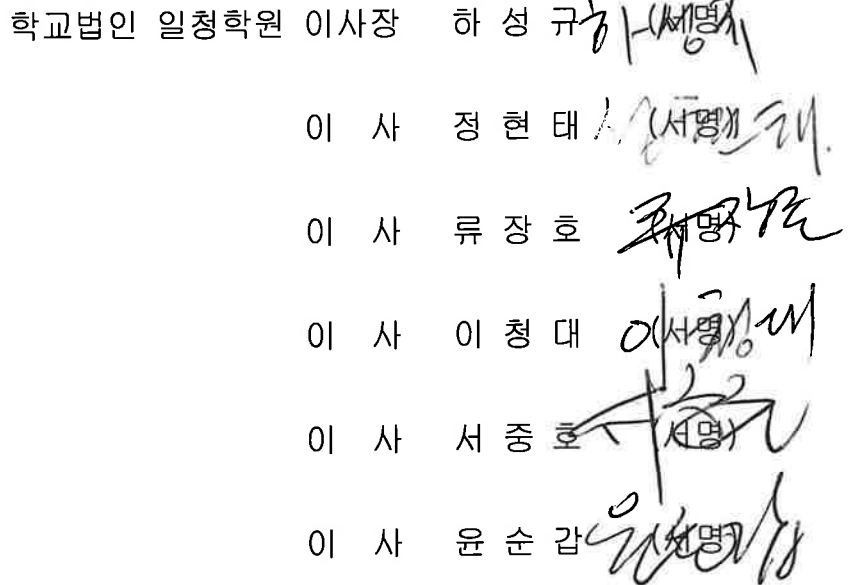 학교법인 일청학원 이사장 하 성 규 (서명)
이 사 정 현 태 (서명)
이 사 류 장 호 (서명)
이 사 이 청 대 (서명)
이 사 서 중 호 (서명)
이 사 윤 순 갑 (서명)